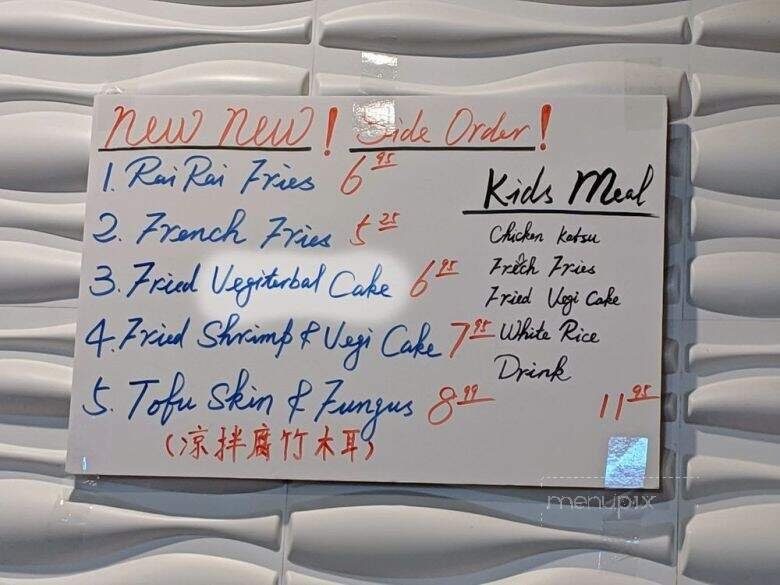 New New! Side Order!
1. Rai Rai Fries 6.95
2. French Fries 5.25
3. Fried Vegiterbal Cake 6.95
4. Fried Shrimp & Vegi Cake 7.95
5. Tofu Skin & Fungus 8.99
(凉拌腐竹木耳)
Kids Meal
Chicken Katsu
French Fries
Fried Vegi Cake
White Rice
Drink
11.95
menupix